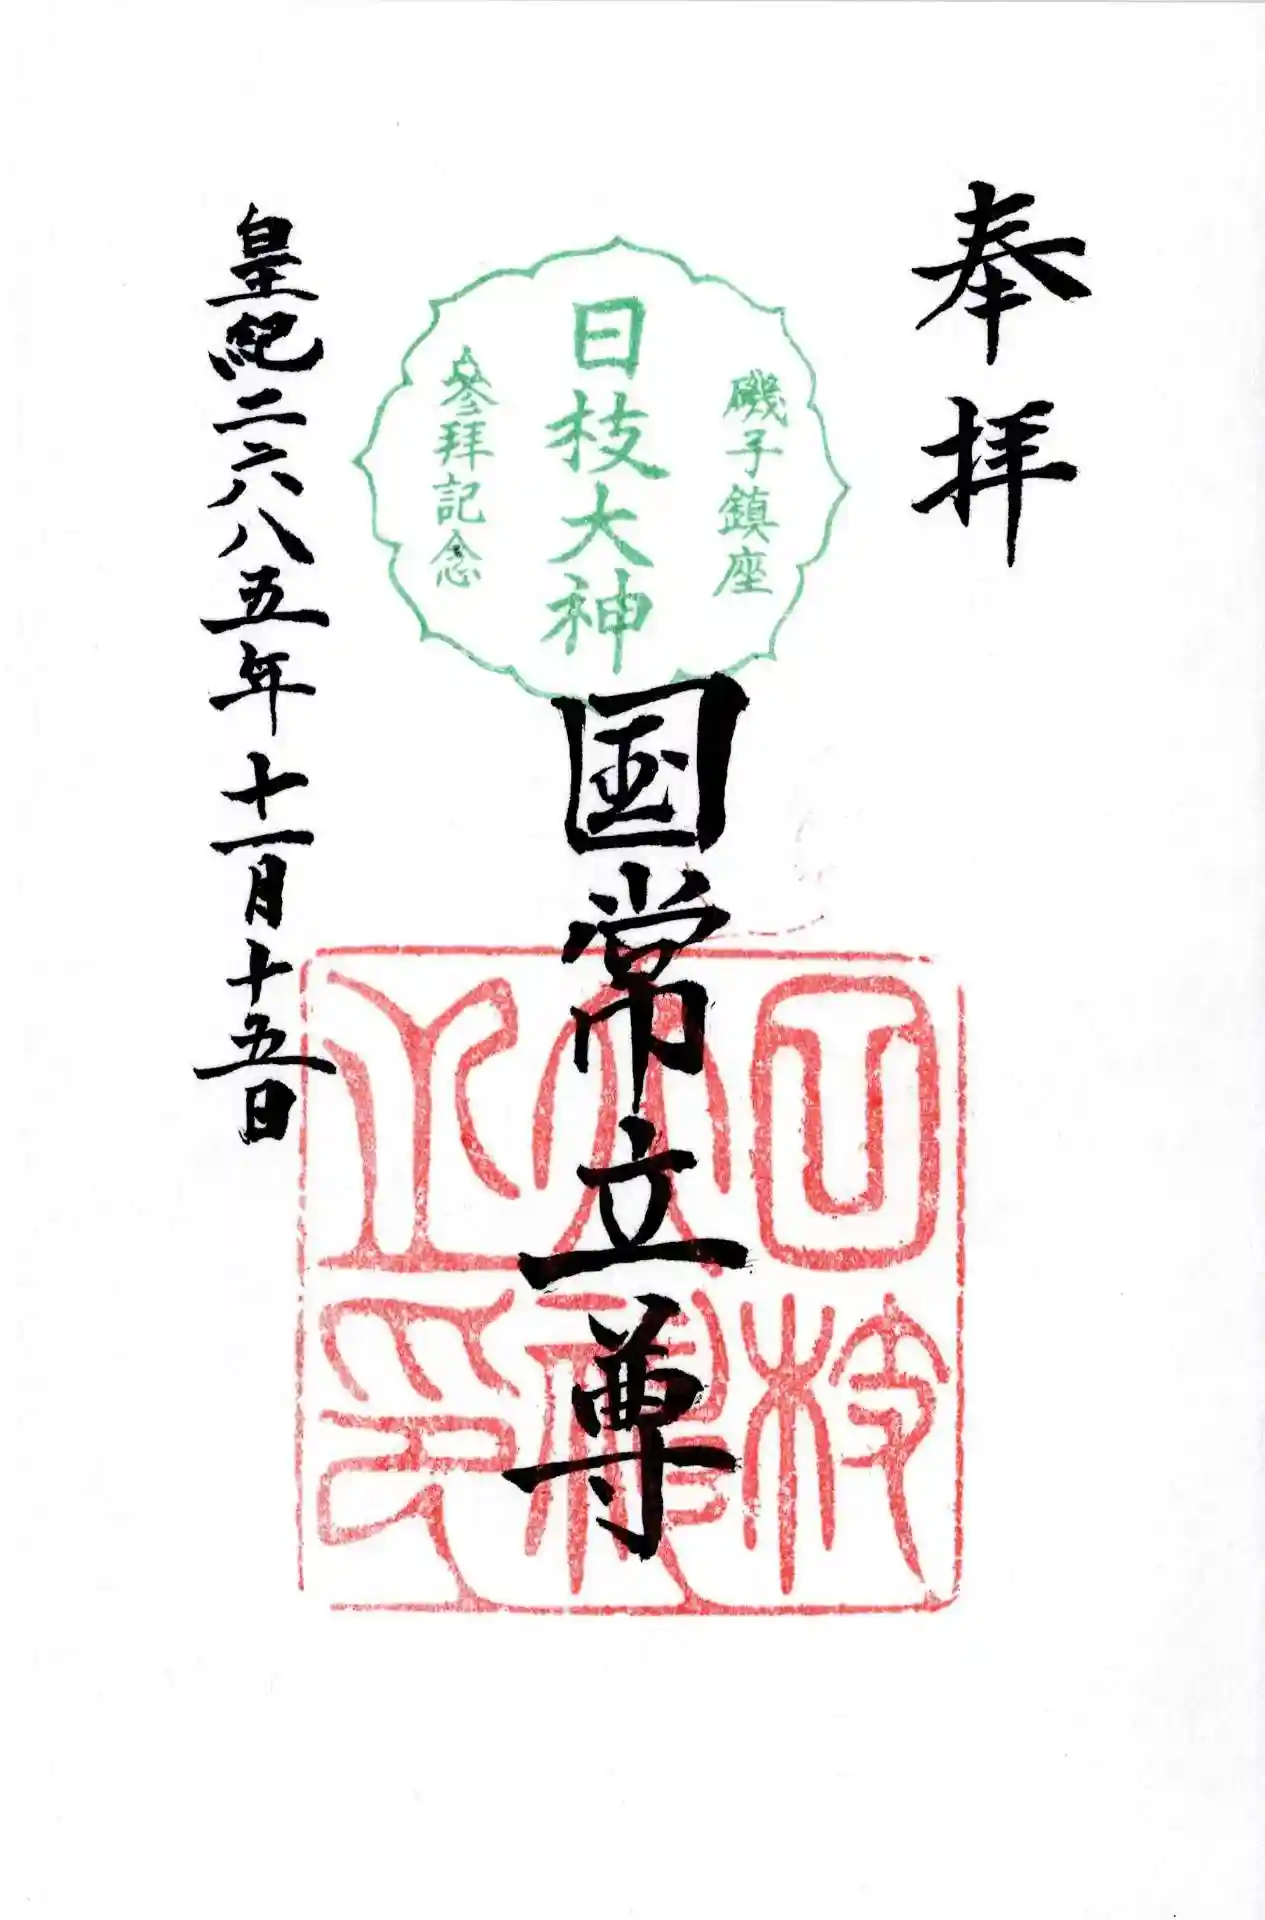 奉拝
磯子鎮座
日枝大神
参拜記念
国常立尊
日枝
大神
之印
皇紀二六八五年十一月十五日